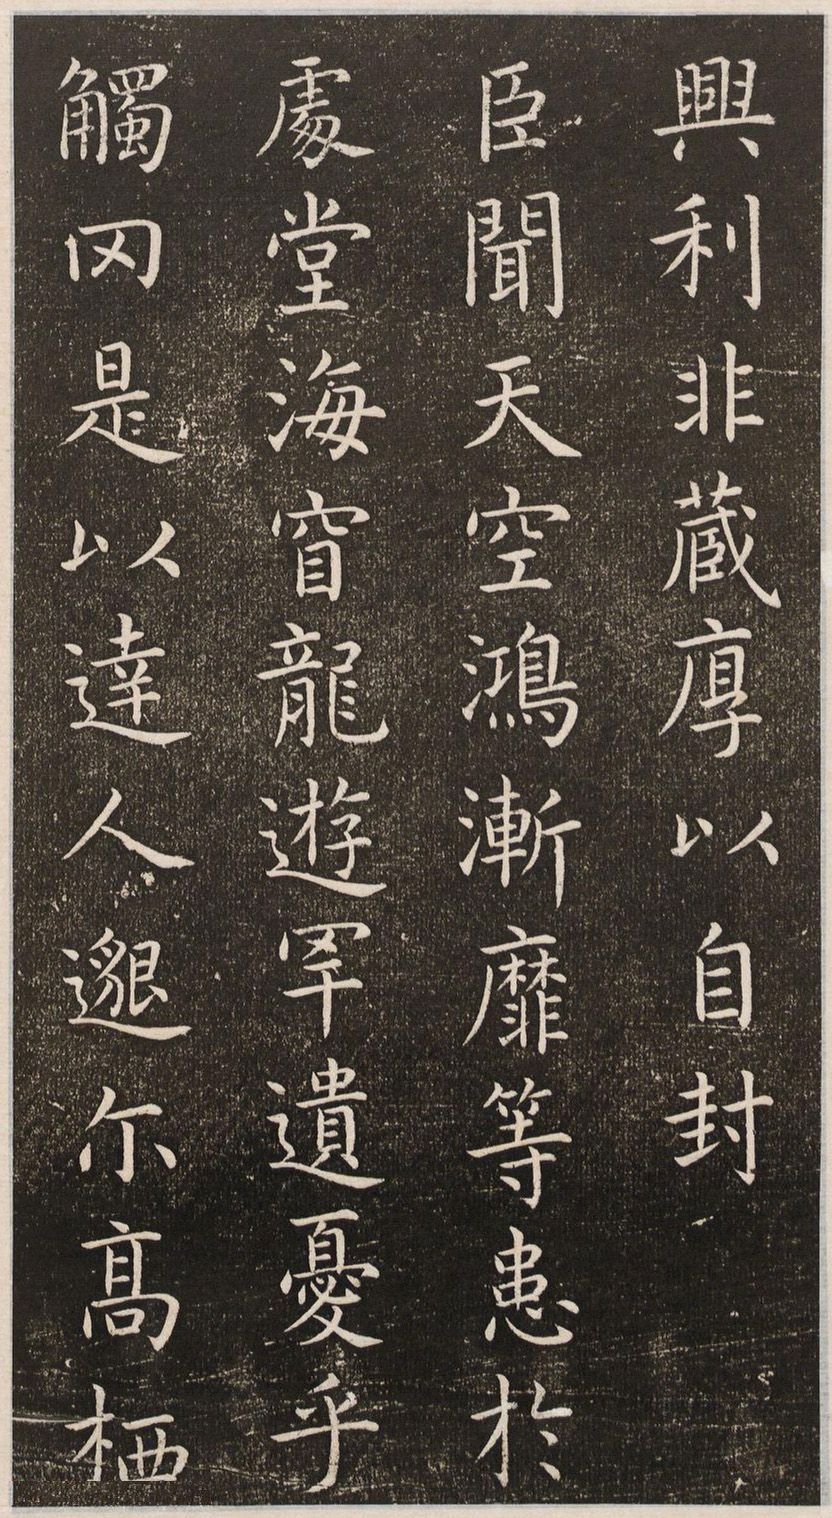 興利非藏厚以自封
臣聞天空鴻漸靡等患於
處堂海窅龍遊罕遺憂乎
觸罔是以達人邈尔高栖